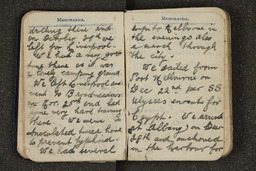 MEMORANDA.
drilling there and
on October 20th we
left for Liverpool.
We had a very good
time there as it was
a lovely camping ground
We left Liverpool and
went to Broadmeadows
on Nov. 25th and had
some very hard training
there. We were
inoculated twice here
to prevent typhoid.
We had several
MEMORANDA.
trips to Melbourne in
the evenings also
a march through
the city.
We sailed from
Port Melbourne on
Dec 22nd per SS
Ulysses en route for
Egypt. We arrived
at Albany on Dec
28th and anchored
in the harbour for